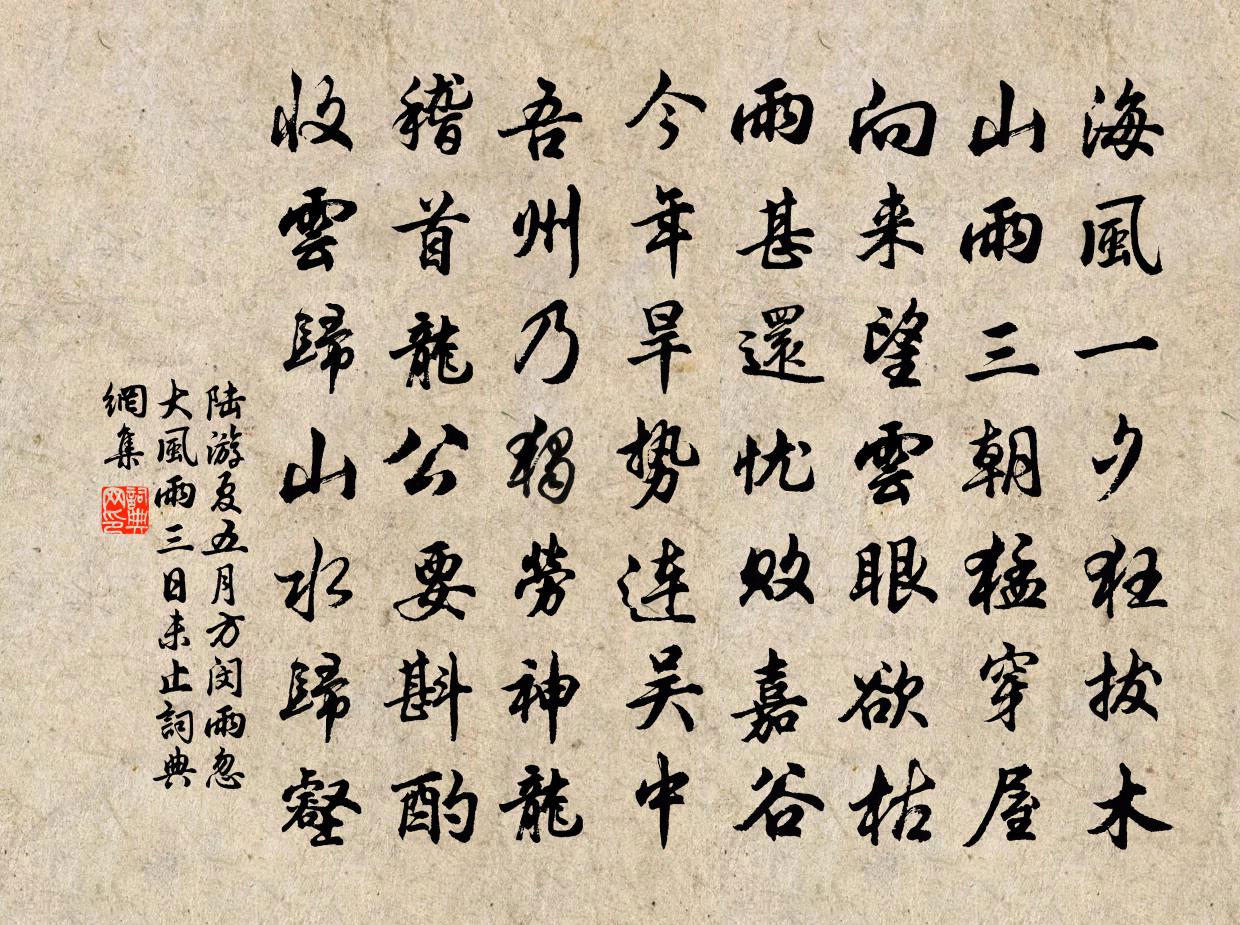 海風一夕狂拔木
山雨三朝猛穿屋
向来望雲眼欲枯
雨甚還忧敗嘉谷
今年旱势連吴中
吾州乃獨勞神龍
稽首龍公要斟酌
收雲歸山水歸壑
陆游夏五月方闵雨忽
大風雨三日未止詞典
網集
詞典网印